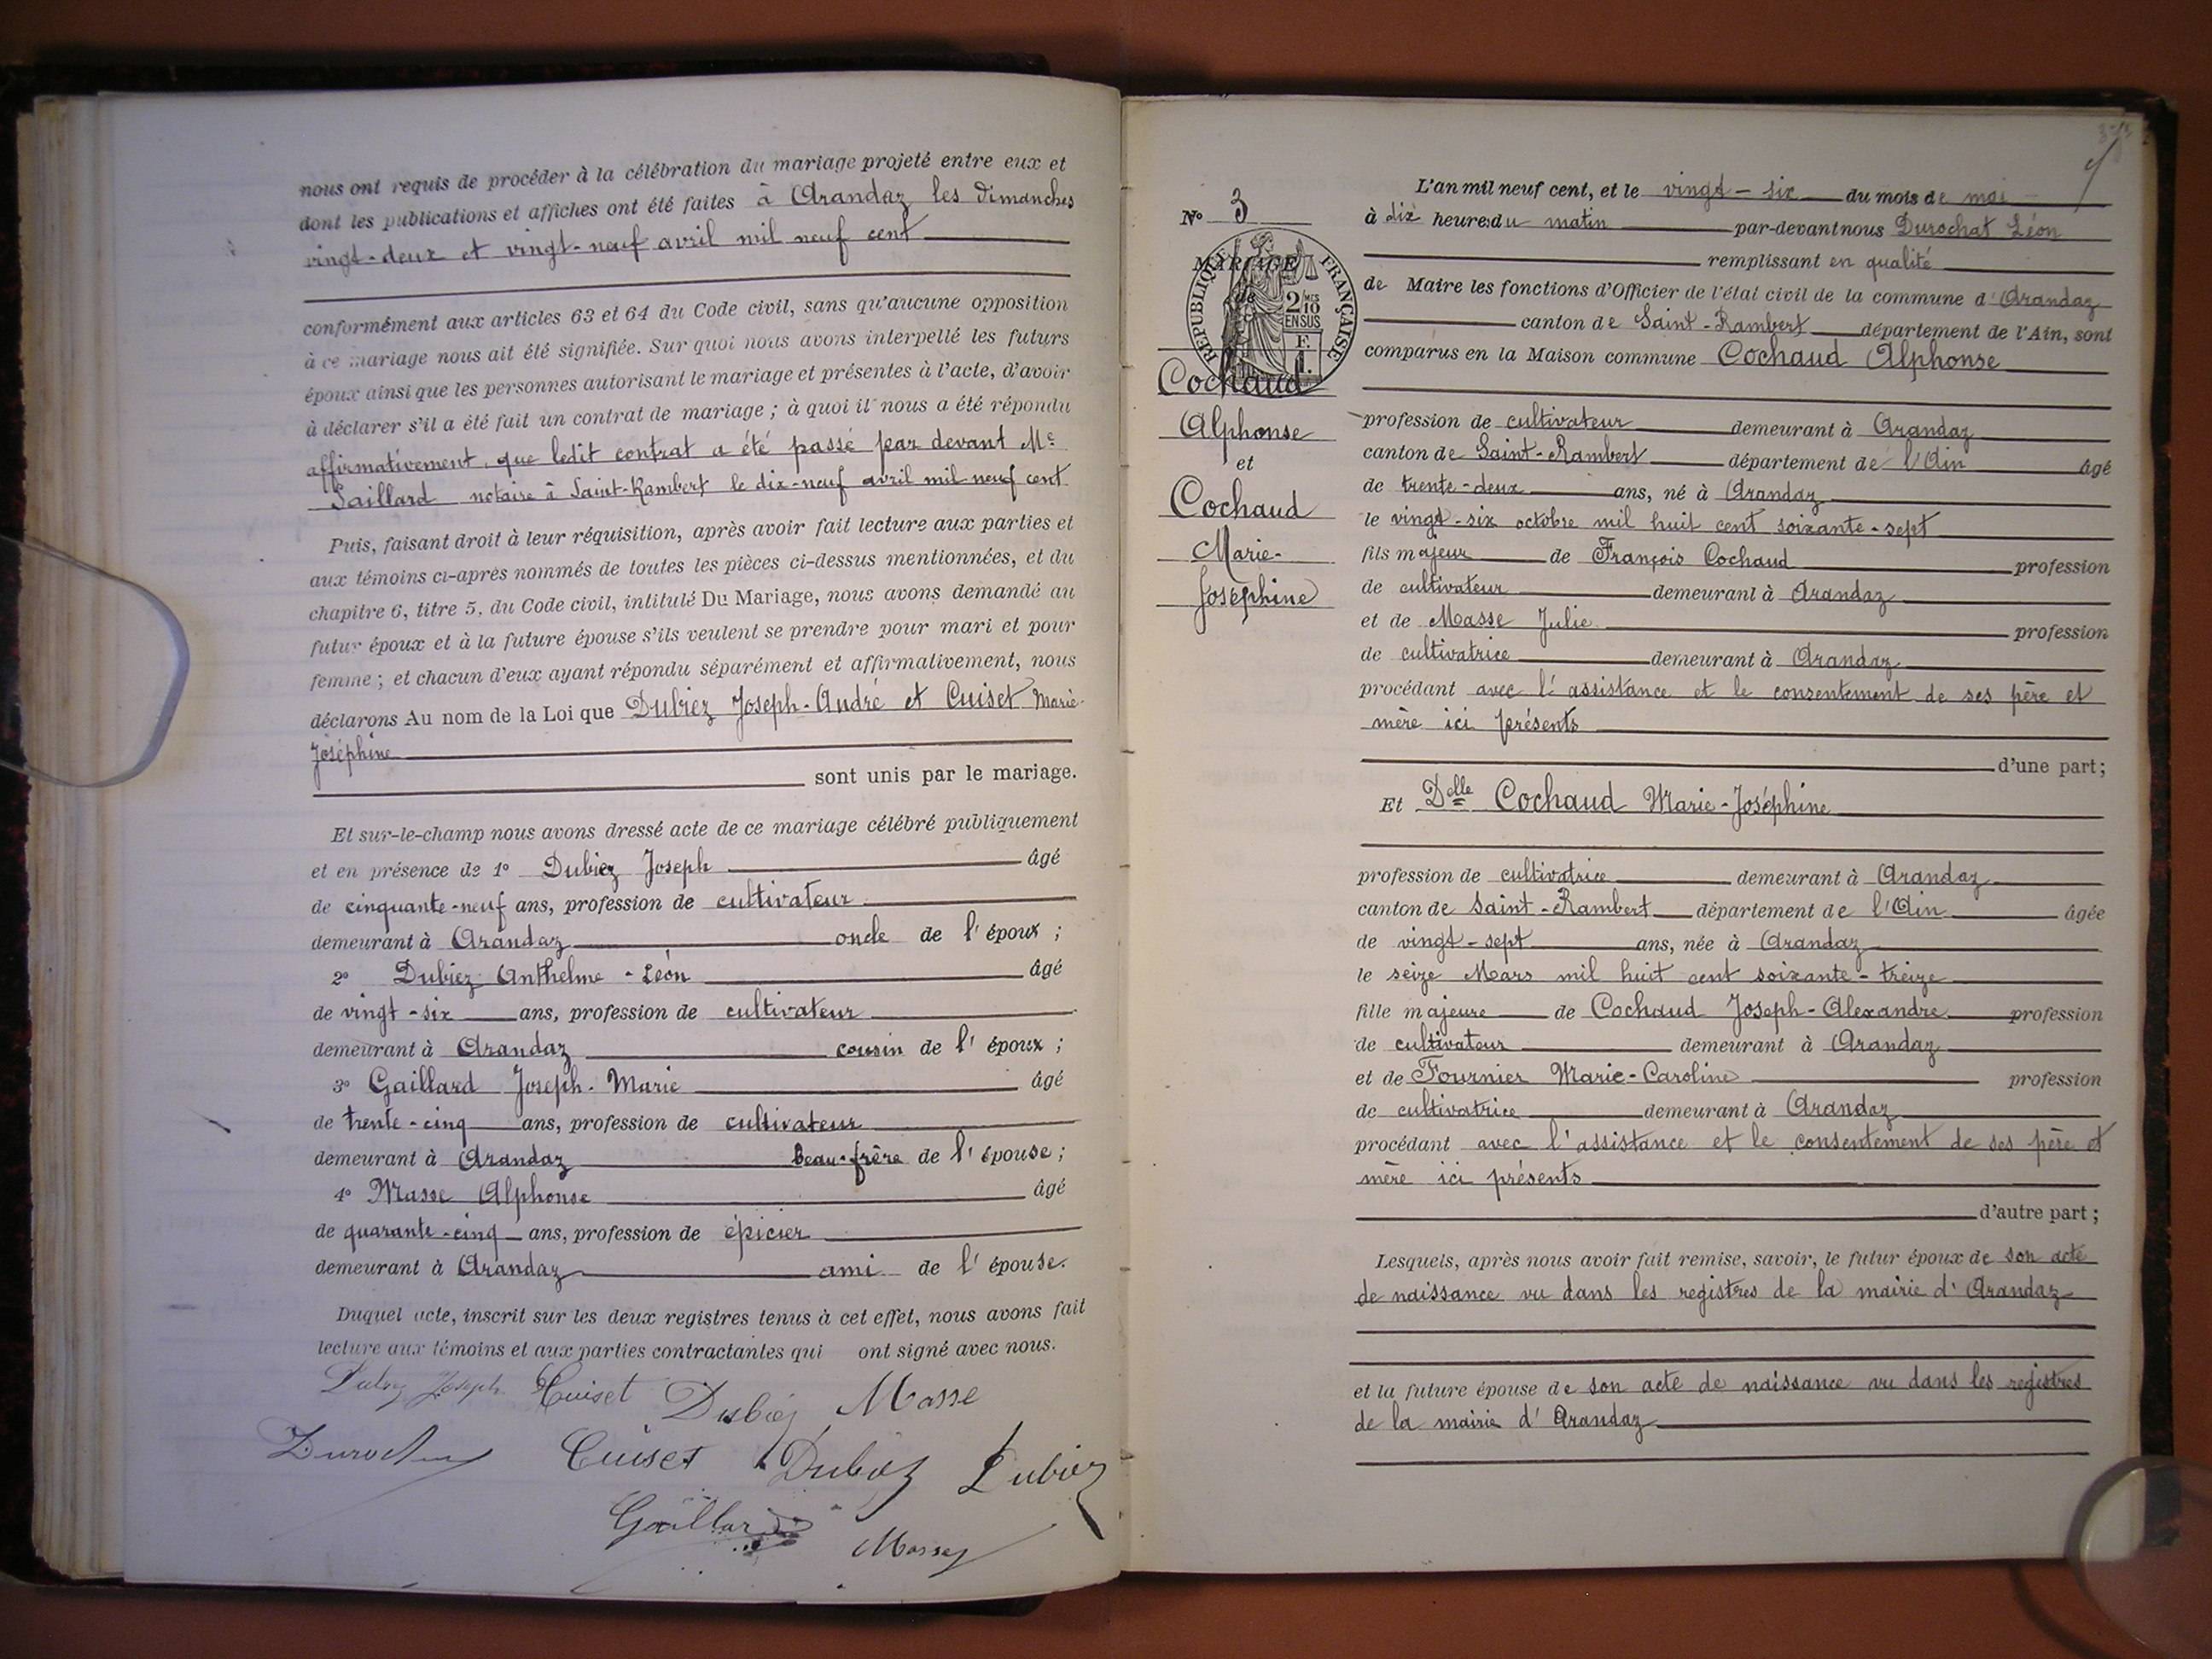 nous ont requis de procéder à la célébration du mariage projeté entre eux et
dont les publications et affiches ont été faites à Arandaz les dimanches
vingt-deux et vingt-neuf avril mil neuf cent
conformément aux articles 63 et 64 du Code civil, sans qu'aucune opposition
à ce mariage nous ait été signifiée. Sur quoi nous avons interpellé les futurs
époux ainsi que les personnes autorisant le mariage et présentes à l'acte, d'avoir
à déclarer s'il a été fait un contrat de mariage ; à quoi il nous a été répondu
affirmativement, que ledit contrat a été passé par devant Me
Saillard notaire à Saint-Rambert le dix-neuf avril mil neuf cent
Puis, faisant droit à leur réquisition, après avoir fait lecture aux parties et
aux témoins ci-après nommés de toutes les pièces ci-dessus mentionnées, et du
chapitre 6, titre 5, du Code civil, intitulé Du Mariage, nous avons demandé au
futur époux et à la future épouse s'ils veulent se prendre pour mari et pour
femme ; et chacun d'eux ayant répondu séparément et affirmativement, nous
déclarons Au nom de la Loi que Dubiez Joseph-André et Cuiset Marie-
Joséphine
sont unis par le mariage.
Et sur-le-champ nous avons dressé acte de ce mariage célébré publiquement
et en présence de 1° Dubiez Joseph âgé
de cinquante-neuf ans, profession de cultivateur
demeurant à Arandaz oncle de l'époux ;
2° Dubiez Anthelme-Léon âgé
de vingt-six ans, profession de cultivateur
demeurant à Arandaz cousin de l'époux ;
3° Gaillard Joseph-Marie âgé
de trente-cinq ans, profession de cultivateur
demeurant à Arandaz beau-frère de l'épouse ;
4° Masse Alphonse âgé
de quarante-cinq ans, profession de épicier
demeurant à Arandaz ami de l'épouse.
Duquel acte, inscrit sur les deux registres tenus à cet effet, nous avons fait
lecture aux témoins et aux parties contractantes qui ont signé avec nous.
Dubiez Joseph Cuiset Dubiez Masse
Durochat Cuiset Dubiez Dubiez
Gaillard Masse
N° 3
MARIAGE
de
RÉPUBLIQUE FRANÇAISE
2/10 MES
EN SUS
F.
1.
Cochaud
Alphonse
et
Cochaud
Marie-
Joséphine
L'an mil neuf cent, et le vingt-six du mois de mai
à dix heures du matin par-devant nous Durochat Léon
remplissant en qualité
de Maire les fonctions d'Officier de l'état civil de la commune d'Arandaz
canton de Saint-Rambert département de l'Ain, sont
comparus en la Maison commune Cochaud Alphonse
profession de cultivateur demeurant à Arandaz
canton de Saint-Rambert département de l'Ain âgé
de trente-deux ans, né à Arandaz
le vingt-six octobre mil huit cent soixante-sept
fils majeur de François Cochaud profession
de cultivateur demeurant à Arandaz
et de Masse Julie profession
de cultivatrice demeurant à Arandaz
procédant avec l'assistance et le consentement de ses père et
mère ici présents
d'une part ;
Et Delle Cochaud Marie-Joséphine
profession de cultivatrice demeurant à Arandaz
canton de Saint-Rambert département de l'Ain âgée
de vingt-sept ans, née à Arandaz
le seize Mars mil huit cent soixante-treize
fille majeure de Cochaud Joseph-Alexandre profession
de cultivateur demeurant à Arandaz
et de Fournier Marie-Caroline profession
de cultivatrice demeurant à Arandaz
procédant avec l'assistance et le consentement de ses père et
mère ici présents
d'autre part ;
Lesquels, après nous avoir fait remise, savoir, le futur époux de son acte
de naissance vu dans les registres de la mairie d'Arandaz
et la future épouse de son acte de naissance vu dans les registres
de la mairie d'Arandaz